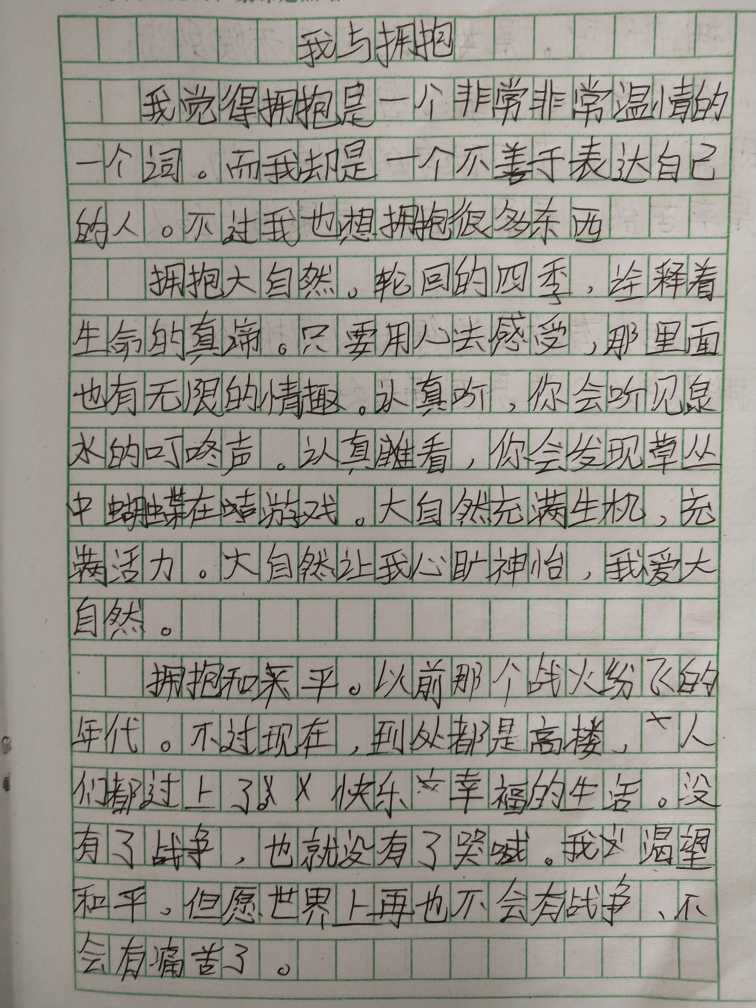 我与拥抱
我觉得拥抱是一个非常非常温情的
一个词。而我却是一个不善于表达自己
的人。不过我也想拥抱很多东西
拥抱大自然。轮回的四季，诠释着
生命的真谛。只要用心去感受，那里面
也有无限的情趣。认真听，你会听见泉
水的叮咚声。认真瞧看，你会发现草丛
中蝴蝶在嘻游戏。大自然充满生机，充
满活力。大自然让我心旷神怡，我爱大
自然。
拥抱和平。以前那个战火纷飞的
年代。不过现在，到处都是高楼，人
们都过上了快乐幸福的生活。没
有了战争，也就没有了哭喊。我渴望
和平。但愿世界上再也不会有战争、不
会有痛苦了。